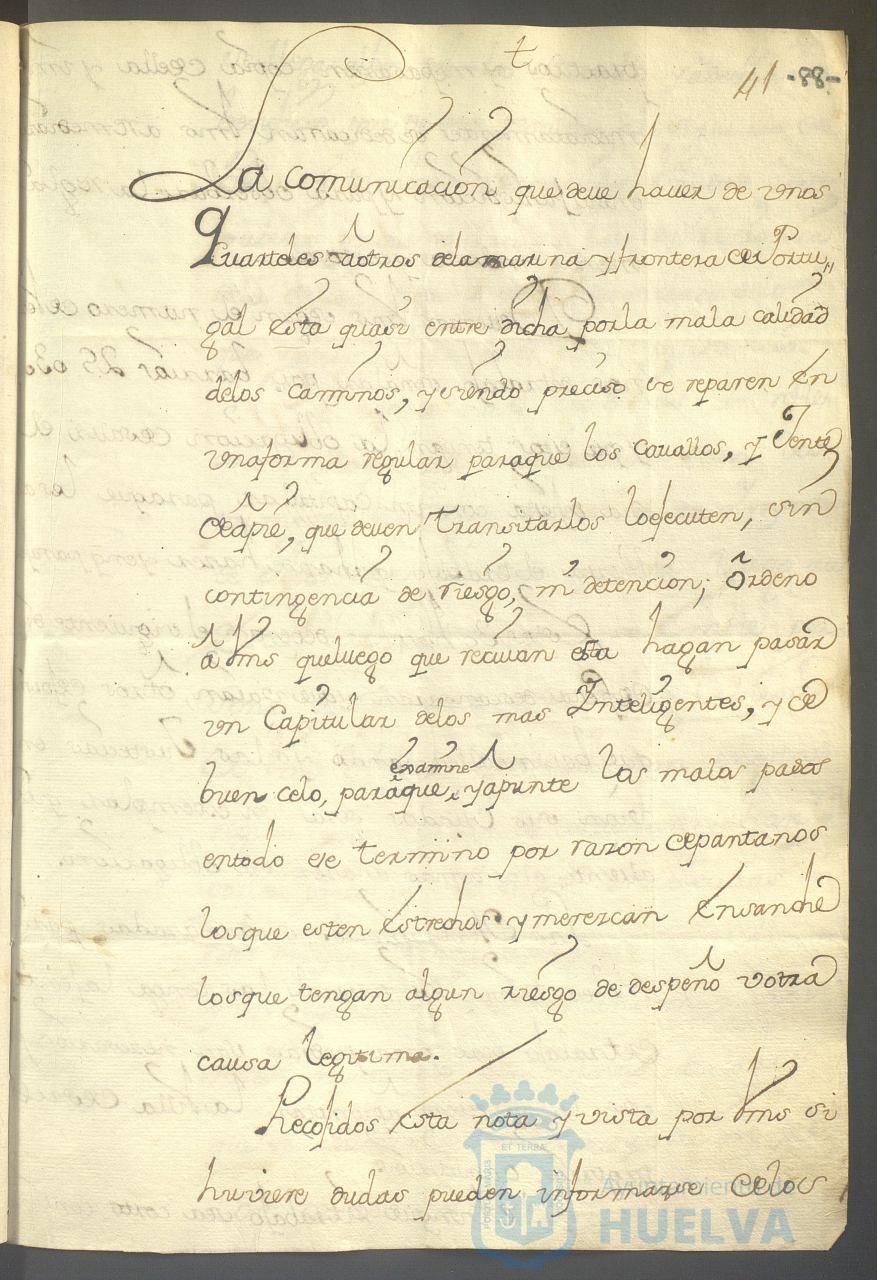 †
41 -88-
La comunicacion que deve haver de unos
Quarteles a otros de la marina y frontera de Portu,,
gal esta quasi entre dicha por la mala calidad
de los caminos, y siendo preciso se reparen en
una forma regular para que los cavallos, y Jente
de â pie, que deven transitarlos lo ejecuten, sin
contingencia de riesgo, ni detencion; Ordeno
a Vms que luego que recivan esta hagan pasar
un Capitular de los mas Inteligentes, y de
examine
buen celo, para que, y apunte los malos pasos
en todo ese termino por razon de pantanos
los que esten estrechos y merezcan ensanche
los que tengan algun riesgo de despeño u otra
causa legitima.
Recojidos esta nota y vista por Vms si
huviere dudas pueden informarse de los
ET TERRAE
Ayuntamiento de
HUELVA